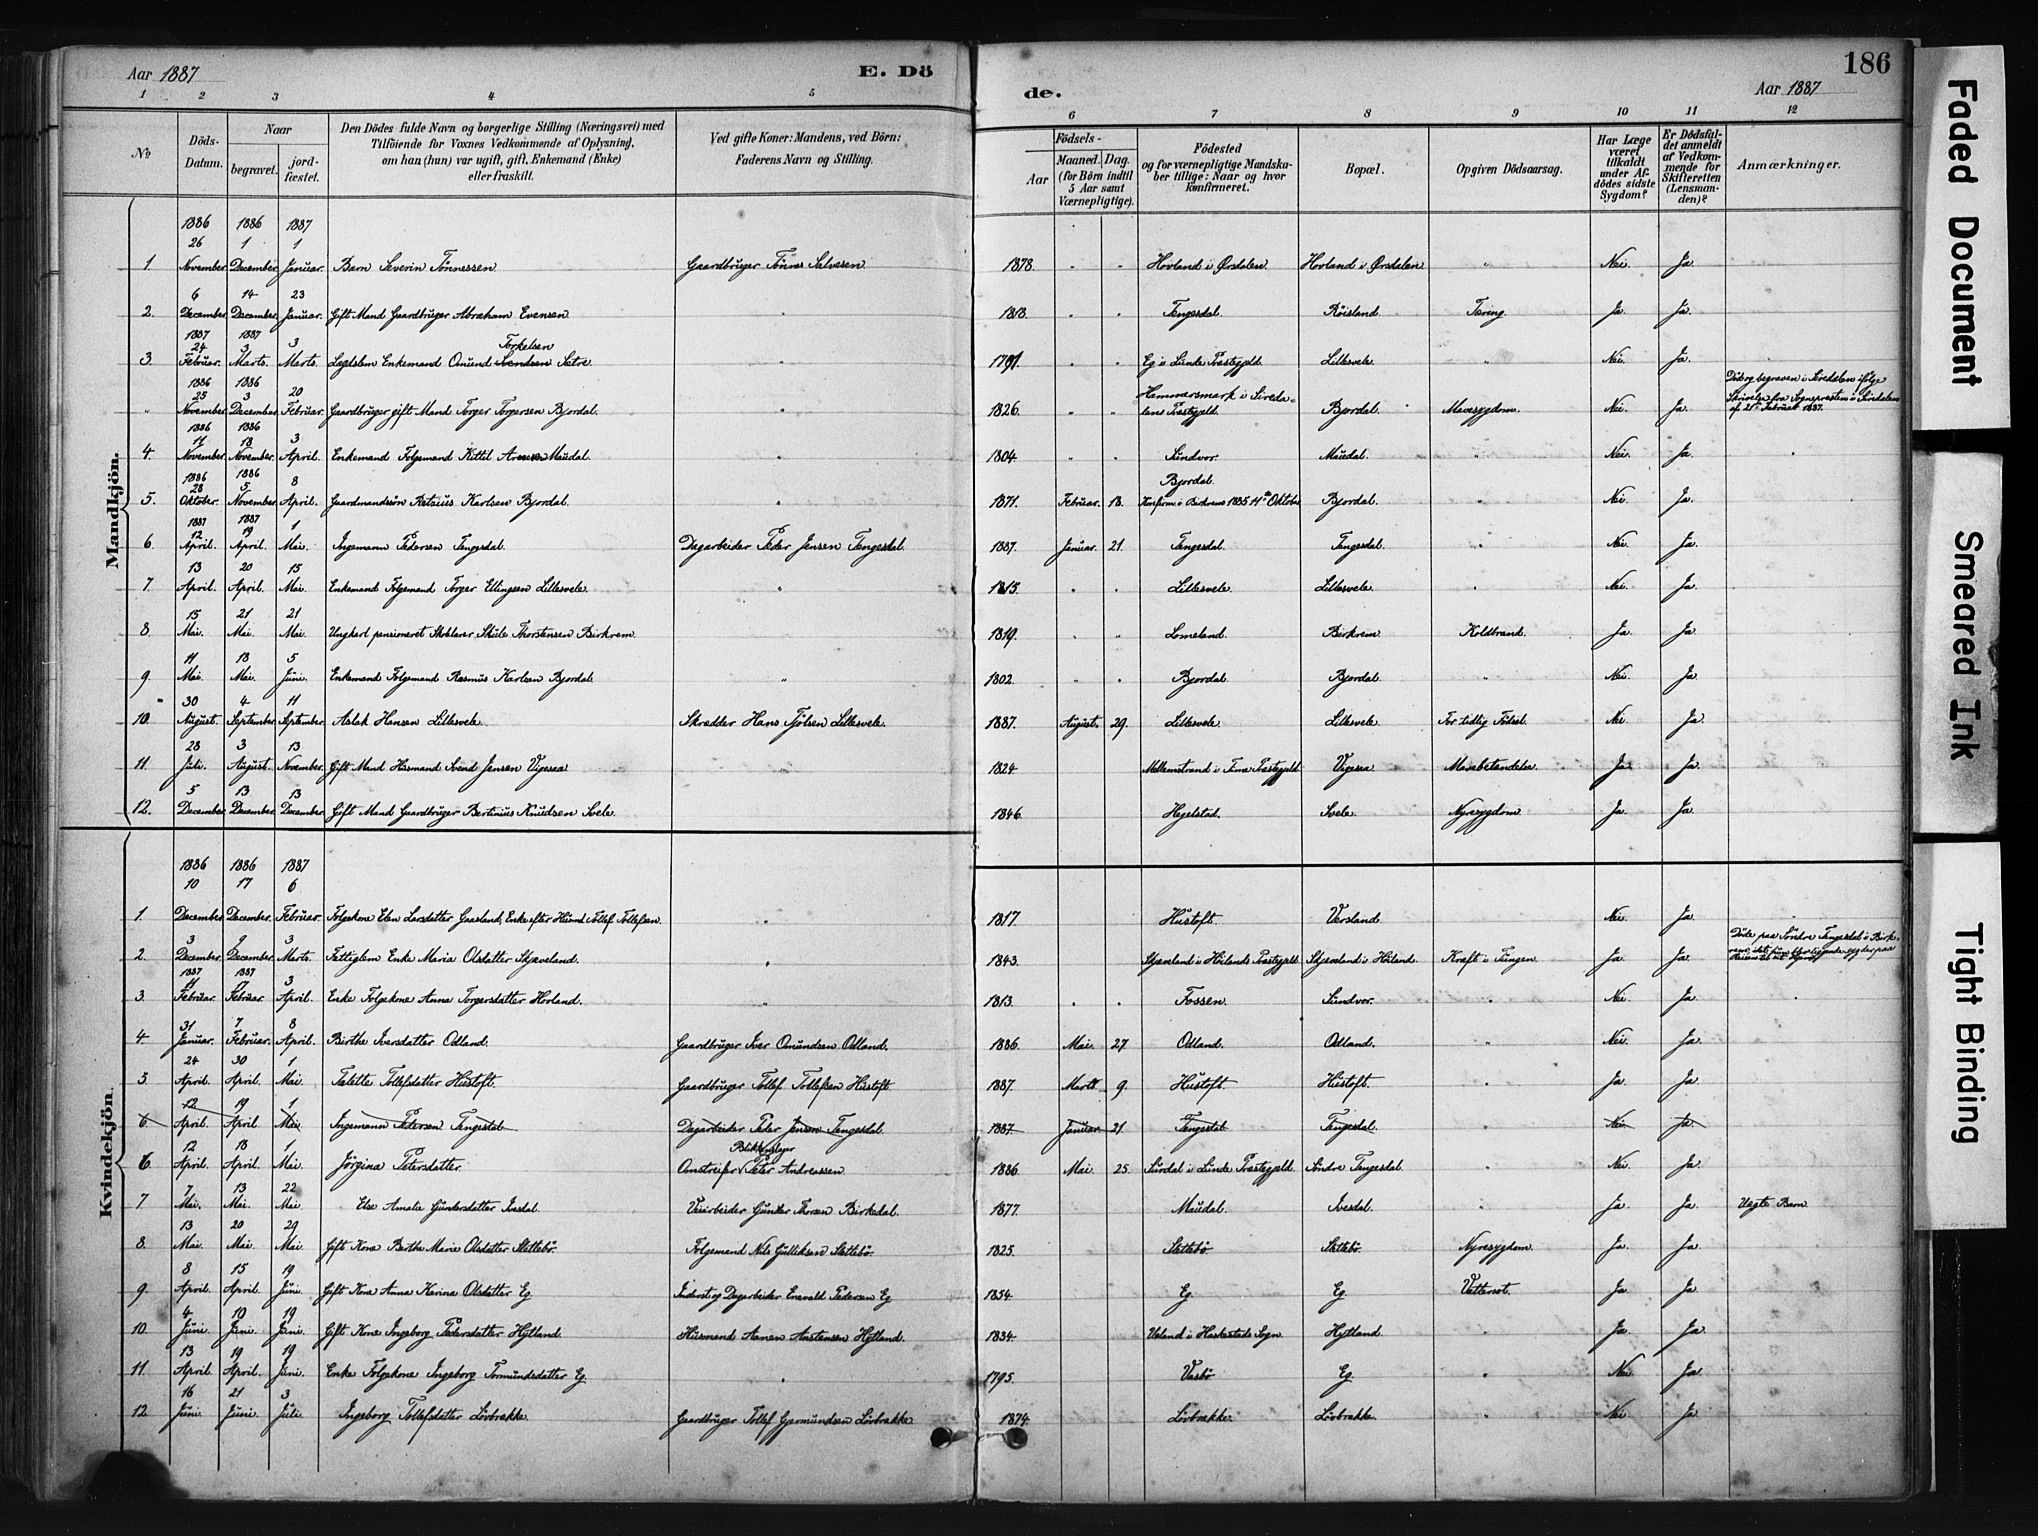 Aar 1887
E. Dö
de.
186
Aar 1887
1 2 3 4 5 6 7 8 9 10 11 12
No
Döds-Datum.
Naar
begravet.
jordfæstet.
Den Dödes fulde Navn og borgerlige Stilling (Næringsvei) med Tilföiende for Voxnes Vedkommende af Oplysning, om han (hun) var ugift, gift, Enkemand (Enke) eller fraskilt.
Ved gifte Koner: Mandens, ved Börn: Faderens Navn og Stilling.
Födsels-
Aar
Maaned. Dag.
(for Börn indtil 5 Aar samt Værnepligtige).
Födested og for værnepligtige Mandskaber tillige: Naar og hvor konfirmeret.
Bopæl.
Opgiven Dödsaarsag.
Har Læge været tilkaldt under Afdödes sidste Sygdom?
Er Dödsfaldet anmeldt af Vedkommende for Skifteretten (Lensmanden)?
Anmærkninger.
Mandkjön.
1886 1886 1887
26 1 1
1 November December Januar. Barn Severin Tönnessen Gaardbruger Tönnes Salvesen 1878. " " Hovland i Ørsdalen Hovland i Ørsdalen " Nei. Ja.
6 14 23
2. December December Januar. Gift Mand Gaardbruger Abraham Evensen " 1813. " " Tengesdal Röisland Tæring Ja. Ja.
1887 1887
24 3 3 Torkelsen
3. Februar. Marts. Marts. Lægdslem Enkemand Omund Svendsen Sætre " 1791. " " Eg i Lunde Præstegjeld Lillesvele " Nei. Ja.
1886 1886
25 3 20
" November December Februar. Gaardbruger gift Mand Torger Torgersen Bjordal. " 1826. Hammersmark i Siredalens Præstegjeld. Bjordal. Mavesygdom. Nei. Ja. Död og begraven i Siredalen ifølge Skrivelse fra Sognepræsten i Siredalen af 21de Februar 1887.
1886 1886
11 18 3
4. November November. April. Enkemand Folgemand Kittil Arnesen Maudal. " 1804. " " Sundvor. Maudal. " Nei. Ja.
1886 1886
28 5 8
5. Oktober November. April. Gaardmandssön Retsius Karlsen Bjordal. " 1871. Februar. 18. Bjordal. Konfirm. i Birkrem 1885 11te Oktober Bjordal. " Nei. Ja.
1887 1887
12 19 1
6. April. April. Mai. Ingemann Pedersen Tengesdal. Dagarbeider Peder Jensen Tengesdal. 1887. Januar. 21. Tengesdal. Tengesdal. " Nei. Ja.
13 20 15
7. April. April. Mai. Enkemand Folgemand Torger Ellingsen Lillesvele. " 1815. " " Lillesvele. Lillesvele. " Nei. Ja.
15 21 21
8. Mai. Mai. Mai. Ungkarl pensioneret Skolelærer Skule Thorstensen Birkrem " 1819. " " Lomeland. Birkrem Koldbrand. Ja. Ja.
11 18 5
9. Mai. Mai. Juni. Enkemand Folgemand Rasmus Karlsen Bjordal. " 1802. " " Bjordal. Bjordal. " Nei. Ja.
30 4 11
10. August. September. September. Aslak Hansen Lillesvele. Skrædder Hans Tjölsen Lillesvele. 1887. August. 29. Lillesvele. Lillesvele. For tidlig Födsel. Nei. Ja.
28 3 13
11. Juli. August. November. Gift Mand Husmand Svend Jensen Vigesaa " 1824. Mellemstrand i Præstegjeld Vigesaa Mavebetændelse Ja. Ja.
5 13 13
12. December December December. Gift Mand Gaardbruger Bertinius Knudsen Svele. 1846. Hegelstad. Svele. Nyresygdom Ja. Ja.
Kvindekjön.
1886 1886 1887
10 17 6
1. December December Februar. Folgekone Elen Larsdatter Gaasland, Enke efter Husmd. Tollef Tollefsen. " 1817. Hustoft. Versland. Nei. Ja.
3 9 3
2. December. December. Marts. Fattiglem Enke Maria Olsdatter Skjæveland. " 1843. Skjæveland i Höilands Præstegjeld. Skjæveland i Höiland. Kræft i Tungen Ja. Ja. Döde paa Söndre Tengesdal i Birkrem
1887 1887
11 17 3
3. Februar. Februar. April. Enke Folgekone Anna Torgersdatter Hovland. " 1813. " " Fossen. Sundvor. " Nei. Ja.
31 7 8
4. Januar. Februar. April. Birthe Iversdatter Odland. Gaardbruger Iver Omundsen Odland. 1886. Mai. 27. Odland. Odland. " Nei. Ja.
24 30 1
5. April. April. Mai. Talette Tollefsdatter Hustoft. Gaardbruger Tollef Tollefsen Hustoft 1887. Marts 9. Hustoft. Hustoft. " Ja. Ja.
12 19 1
6. April. April. Mai. Ingemann Pedersen Tengesdal Dagarbeider Peder Jensen Tengesdal. 1887. Januar. 21. Tengesdal Tengesdal. " Nei. Ja.
12 18 1 Blikkenslager
6. April. April. Mai. Jörgine Petersdatter. Omstreifer Peter Andreassen. 1886. Mai. 25. Surdal i Lunde Præstegjeld. Söndre Tengesdal. " Nei. Ja.
7 13 22
7 Mai. Mai. Mai. Else Amalie Gundersdatter Ivesdal. Veiarbeider Gunder Thorsen Birkedal. 1877. Maudal. Ivesdal. " Ja. Ja. Uægte Barn
13 20 29
8. Mai. Mai. Mai. Gift Kone Berthe Marie Olsdatter Slettebö. Folgemand Nils Gulliksen Slettebö. 1825. Slettebö Slettebö. Nyresygdom. Ja. Ja.
8 15 19
9. April. April. Juni. Gift Kone Anna Karina Olsdatter Eg. Inderst og Dagarbeider Enevald Pedersen Eg 1854. Eg. Eg. Vattersot. Ja. Ja.
4 10 19
10. Juni. Juni. Juni. Gift Kone Ingeborg Pedersdatter Hytland. Husmand Aanen Austensen Hytland. 1834. Ueland i Heskestads Sogn Hytland " Ja. Ja.
13 19 19
11. April. April. Juni. Enke Folgekone Ingeborg Tormundsdatter Eg. " 1795. Vasbö Eg. " Nei Ja.
16 21 3
12. Juni. Juni. Juli. Ingeborg Tollefsdatter Lövbrække. Gaardbruger Tollef Gjermundsen Lövbrække 1874. Lövbrække. Lövbrække. " Nei. Ja.
Faded Document
Smeared Ink
Tight Binding